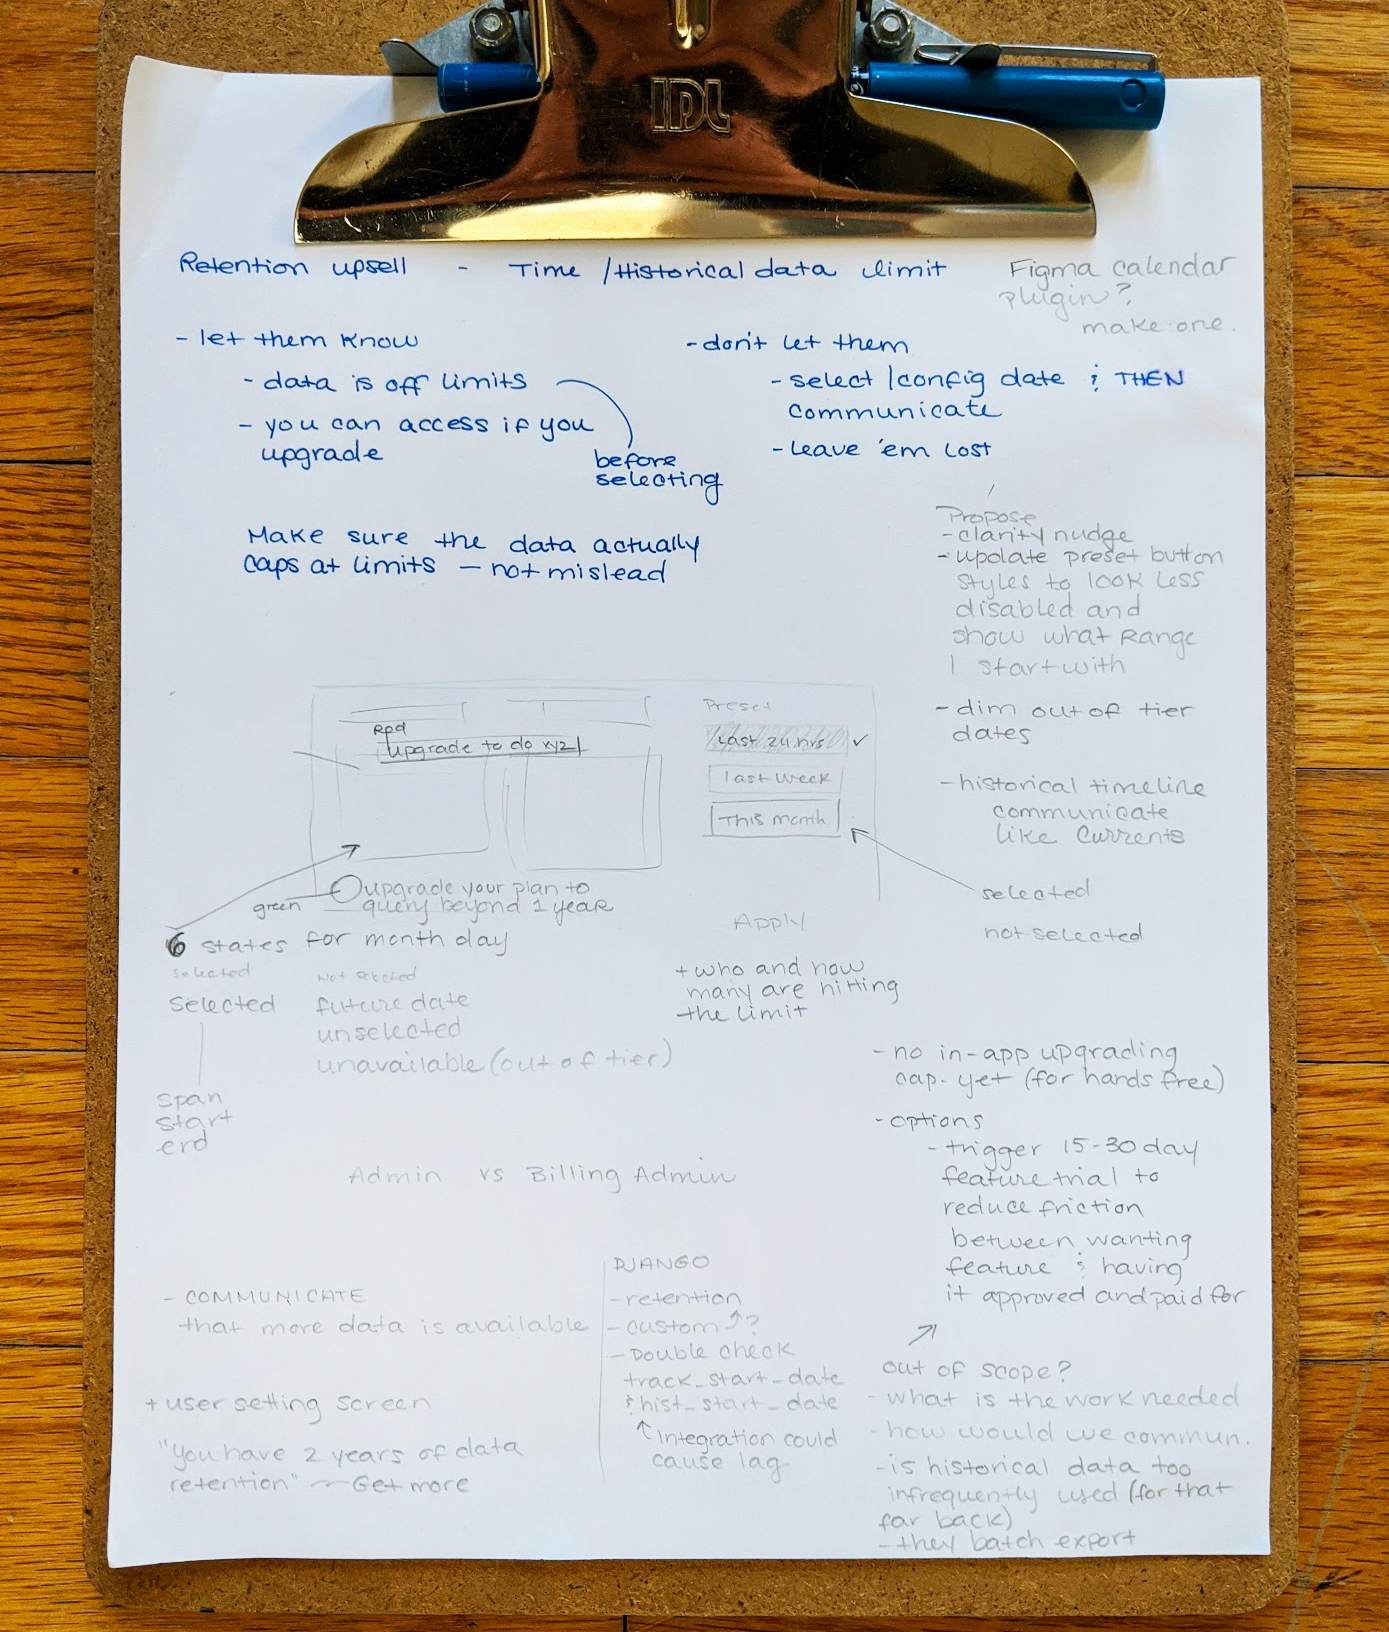 IDL
Retention upsell - Time / Historical data limit
Figma calendar
plugin?
make one.
- let them know
- data is off limits
- you can access if you
upgrade
before
selecting
- don't let them
- select / config date & THEN
communicate
- leave 'em lost
Make sure the data actually
caps at limits - not mislead
Propose
- clarity nudge
- update preset button
styles to look less
disabled and
show what range
I start with
- dim out of tier
dates
- historical timeline
communicate
like Currents
upgrade to do xyz
Preset
Last 24 hrs ✓
last week
This month
selected
not selected
green
upgrade your plan to
query beyond 1 year
Apply
6 states for month day
selected
Not selected
selected
future date
unselected
unavailable (out of tier)
span
start
end
+ who and how
many are hitting
the limit
- no in-app upgrading
cap. yet (for hands free)
- options
- trigger 15-30 day
feature trial to
reduce friction
between wanting
feature & having
it approved and paid for
Admin vs Billing Admin
- COMMUNICATE
that more data is available
+ user setting screen
"You have 2 years of data
retention" — Get more
DJANGO
- retention
- custom ↑?
- Double check
track_start_date
& hist_start_date
↑ Integration could
cause lag
out of scope?
- what is the work needed
- how would we commun.
- is historical data too
infrequently used (for that
far back)
- they batch export